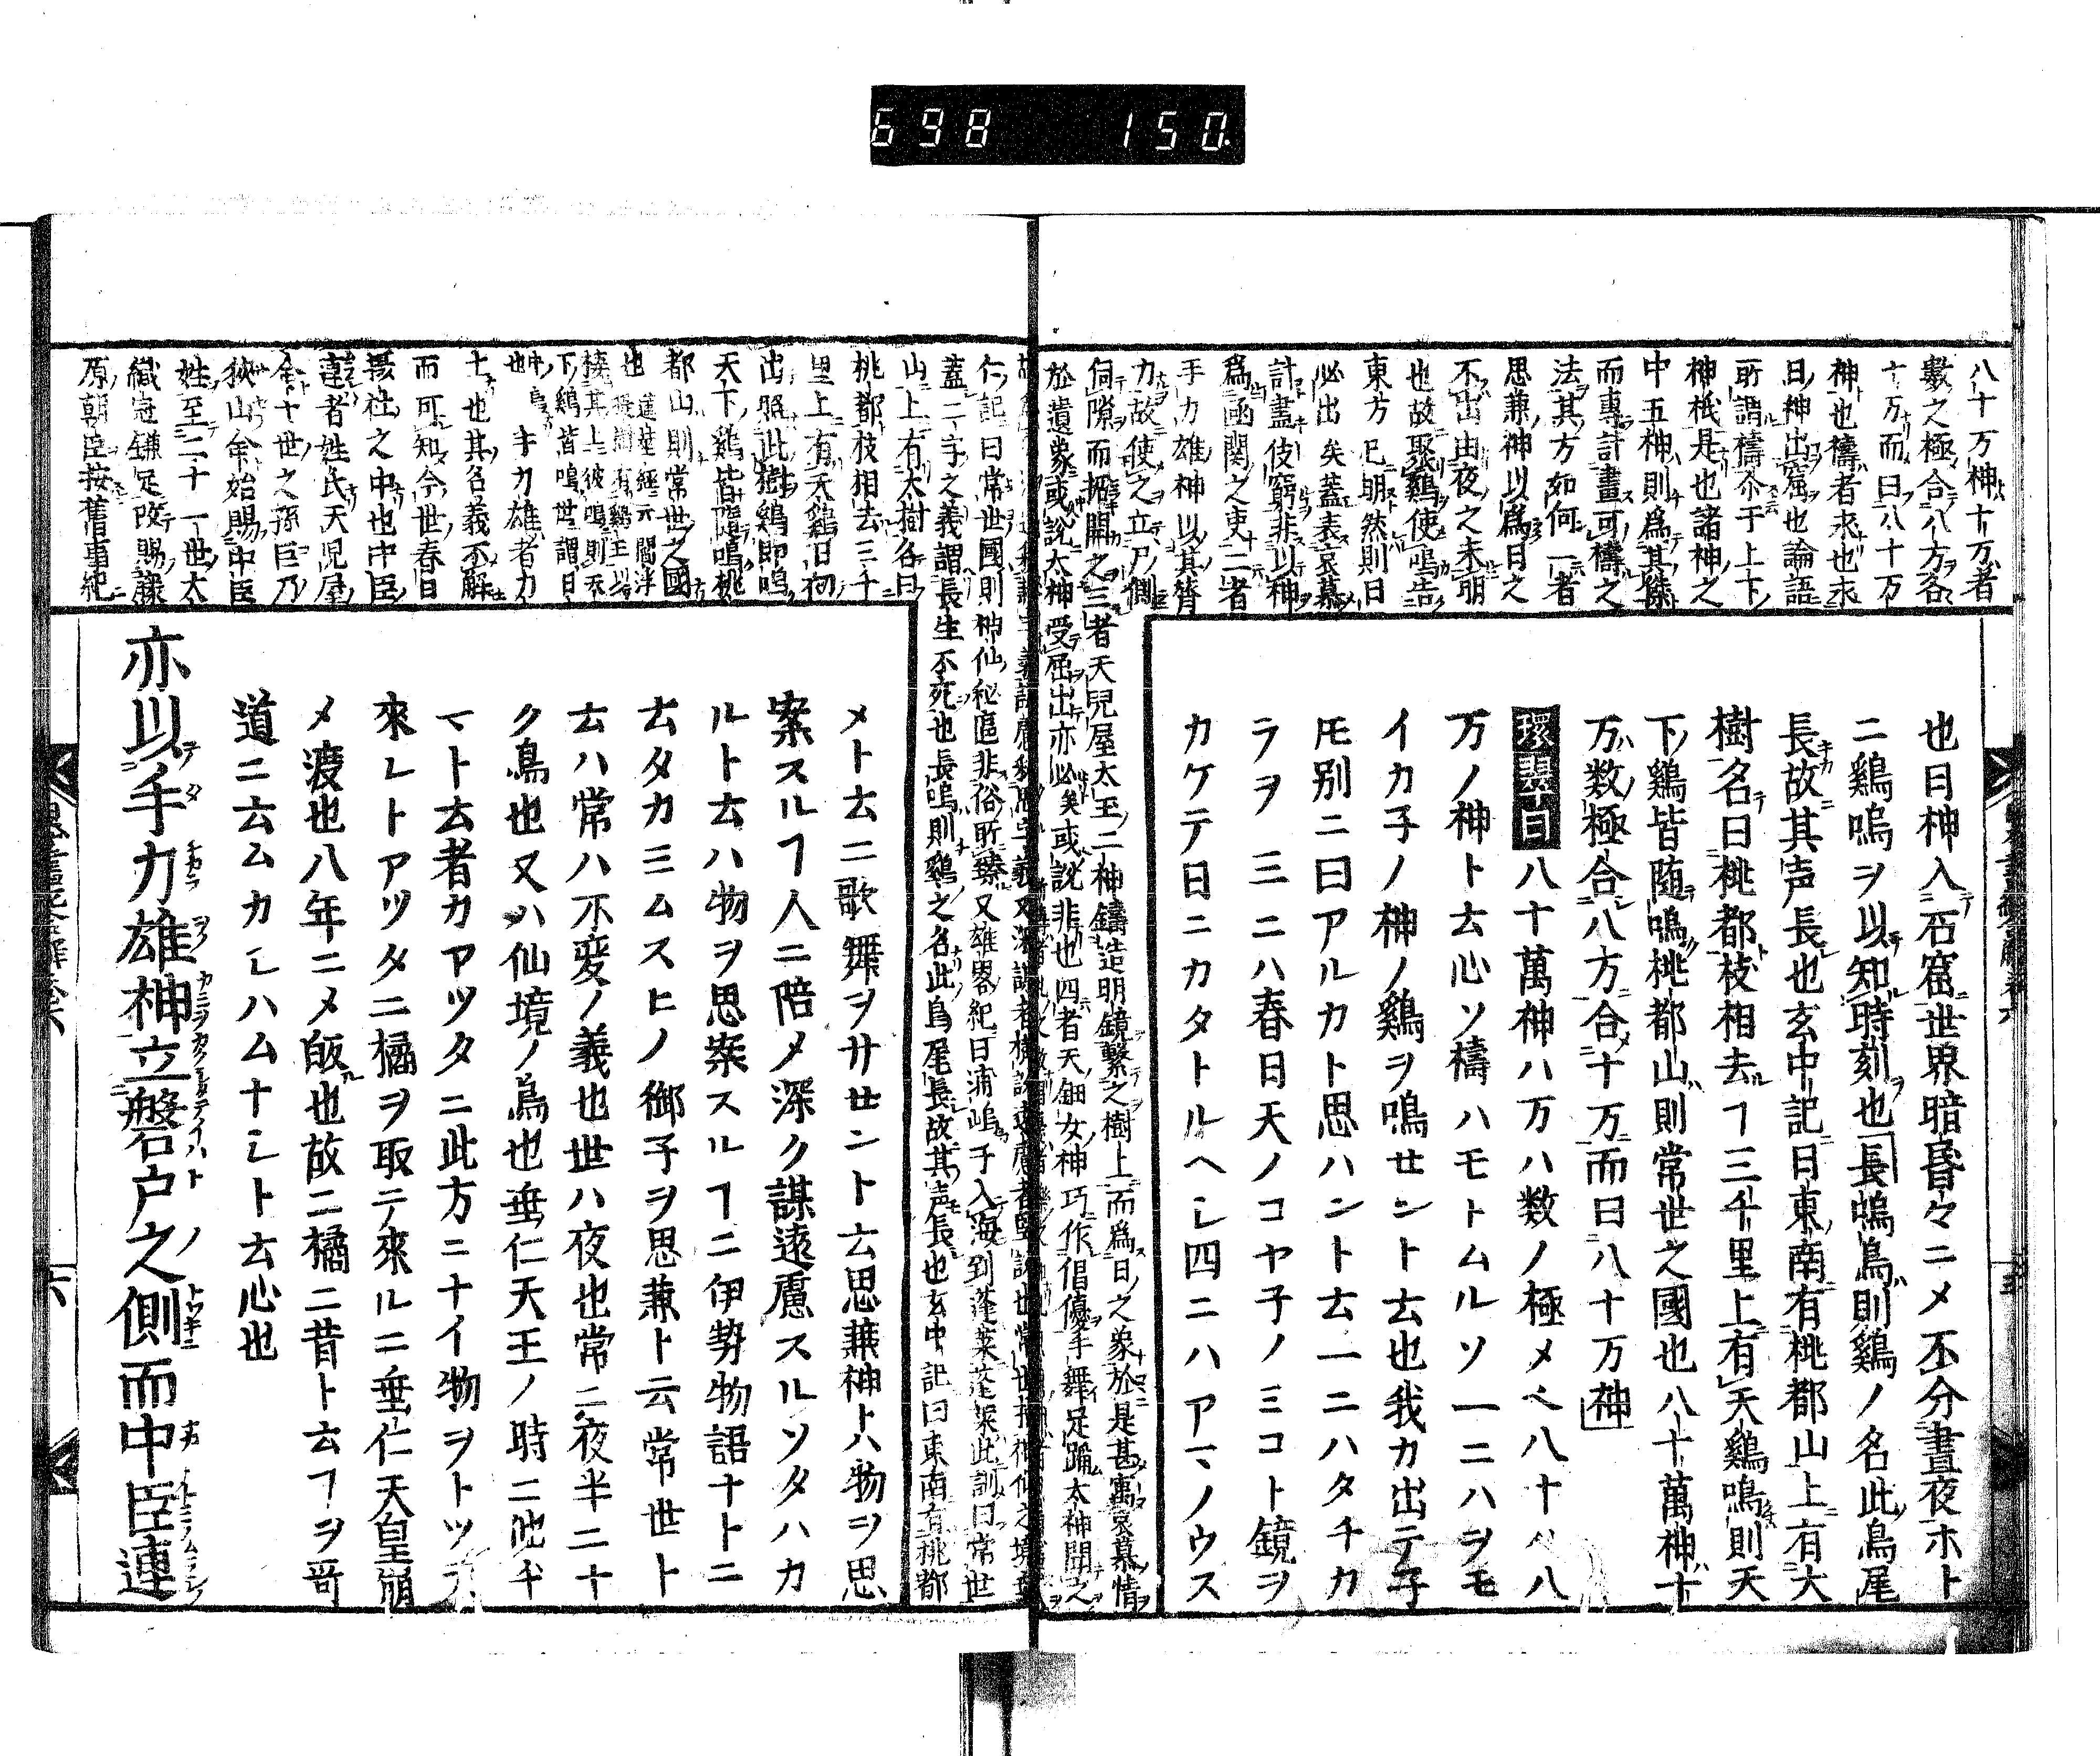 698 150.
八十万神十万者
數之極合八方各
十万而曰八十万
神也禱者求也求
日神出窟也論語
所謂禱尒于上下
神祇是也諸神之
中五神則爲其傑
而專計畫可禱之
法其方如何一者
思兼神以爲日之
不出由夜之未明
也故聚鷄使鳴告
東方已明然則日
必出矣蓋表哀慕
計盡伎窮非以神
爲函關之吏二者
手力雄神以其膂
力故使之立戸側
伺隙而拆開之三者天兒屋太玉二神鑄造明鏡繫之樹上而爲日之象於是甚寓哀慕情
於遺象或說太神受屈出亦必矣或說非也四者天鈿女神巧作倡優手舞足踊太神聞之
也日神入石窟世界暗昏々ニメ不分晝夜ホト
ニ鷄鳴ヲ以知時刻也長鳴鳥則鷄ノ名此鳥尾
長故其声長也玄中記曰東南有桃都山上有大
樹名曰桃都枝相去ヿ三千里上有天鷄鳴則天
下鷄皆随鳴桃都山則常世之國也八十萬神十
万数極合八方合十万而曰八十万神
環翠曰八十萬神ハ万ハ数ノ極メヘ八十ハ八
万ノ神ト云心ソ禱ハモトムルソ一ニハヲモ
イカ子ノ神ノ鷄ヲ鳴せント云也我カ出テ子
𪜈別ニ曰アルカト思ハント云一ニハタチカ
ラヲ三ニハ春日天ノコヤ子ノミコト鏡ヲ
カケテ日ニカタトルヘシ四ニハアマノウス
仁記曰常世國則神仙秘區非俗所臻又雄畧紀曰浦嶋子入海到蓬萊蓬萊此訓曰常世
蓋二字之義謂長生不死也長鳴則鷄之名此鳥尾長故其声長也玄中記曰東南有桃都
山上有大樹名曰
桃都枝相去三千
里上有天鷄日初
出照此樹鷄即鳴
天下鷄皆隨鳴桃
都山則常世之國
也
棲其上彼鳴則天
下鷄皆鳴世謂日
也 手力雄者力
士也其名義不解
而可知今世春日
攝社之中也中臣
連者姓氏天児屋
命十世之孫巨乃
狹山命始賜中臣
姓至二十一世太
織冠鎌足改賜藤
原朝臣按舊事紀
メト云ニ歌舞ヲサせント云思兼神トハ物ヲ思
案スルヿ人ニ陪メ深ク謀遠慮スルソタハカ
ルト云ハ物ヲ思案スルヿニ伊勢物語ナトニ
云タカミムスヒノ御子ヲ思兼ト云常世ト
云ハ常ハ不変ノ義也世ハ夜也常ニ夜半ニナ
ク鳥也又ハ仙境ノ鳥也垂仁天王ノ時ニ
マト云者カアツタニ此方ニナイ物ヲトツテ
來レトアツタニ橘ヲ取テ來ルニ垂仁天皇崩
メ渡也八年ニメ皈也故ニ橘ニ昔ト云ヿヲ哥
道ニ云ムカシハムナシト云心也
亦以手力雄神立磐戸之側而中臣連
六